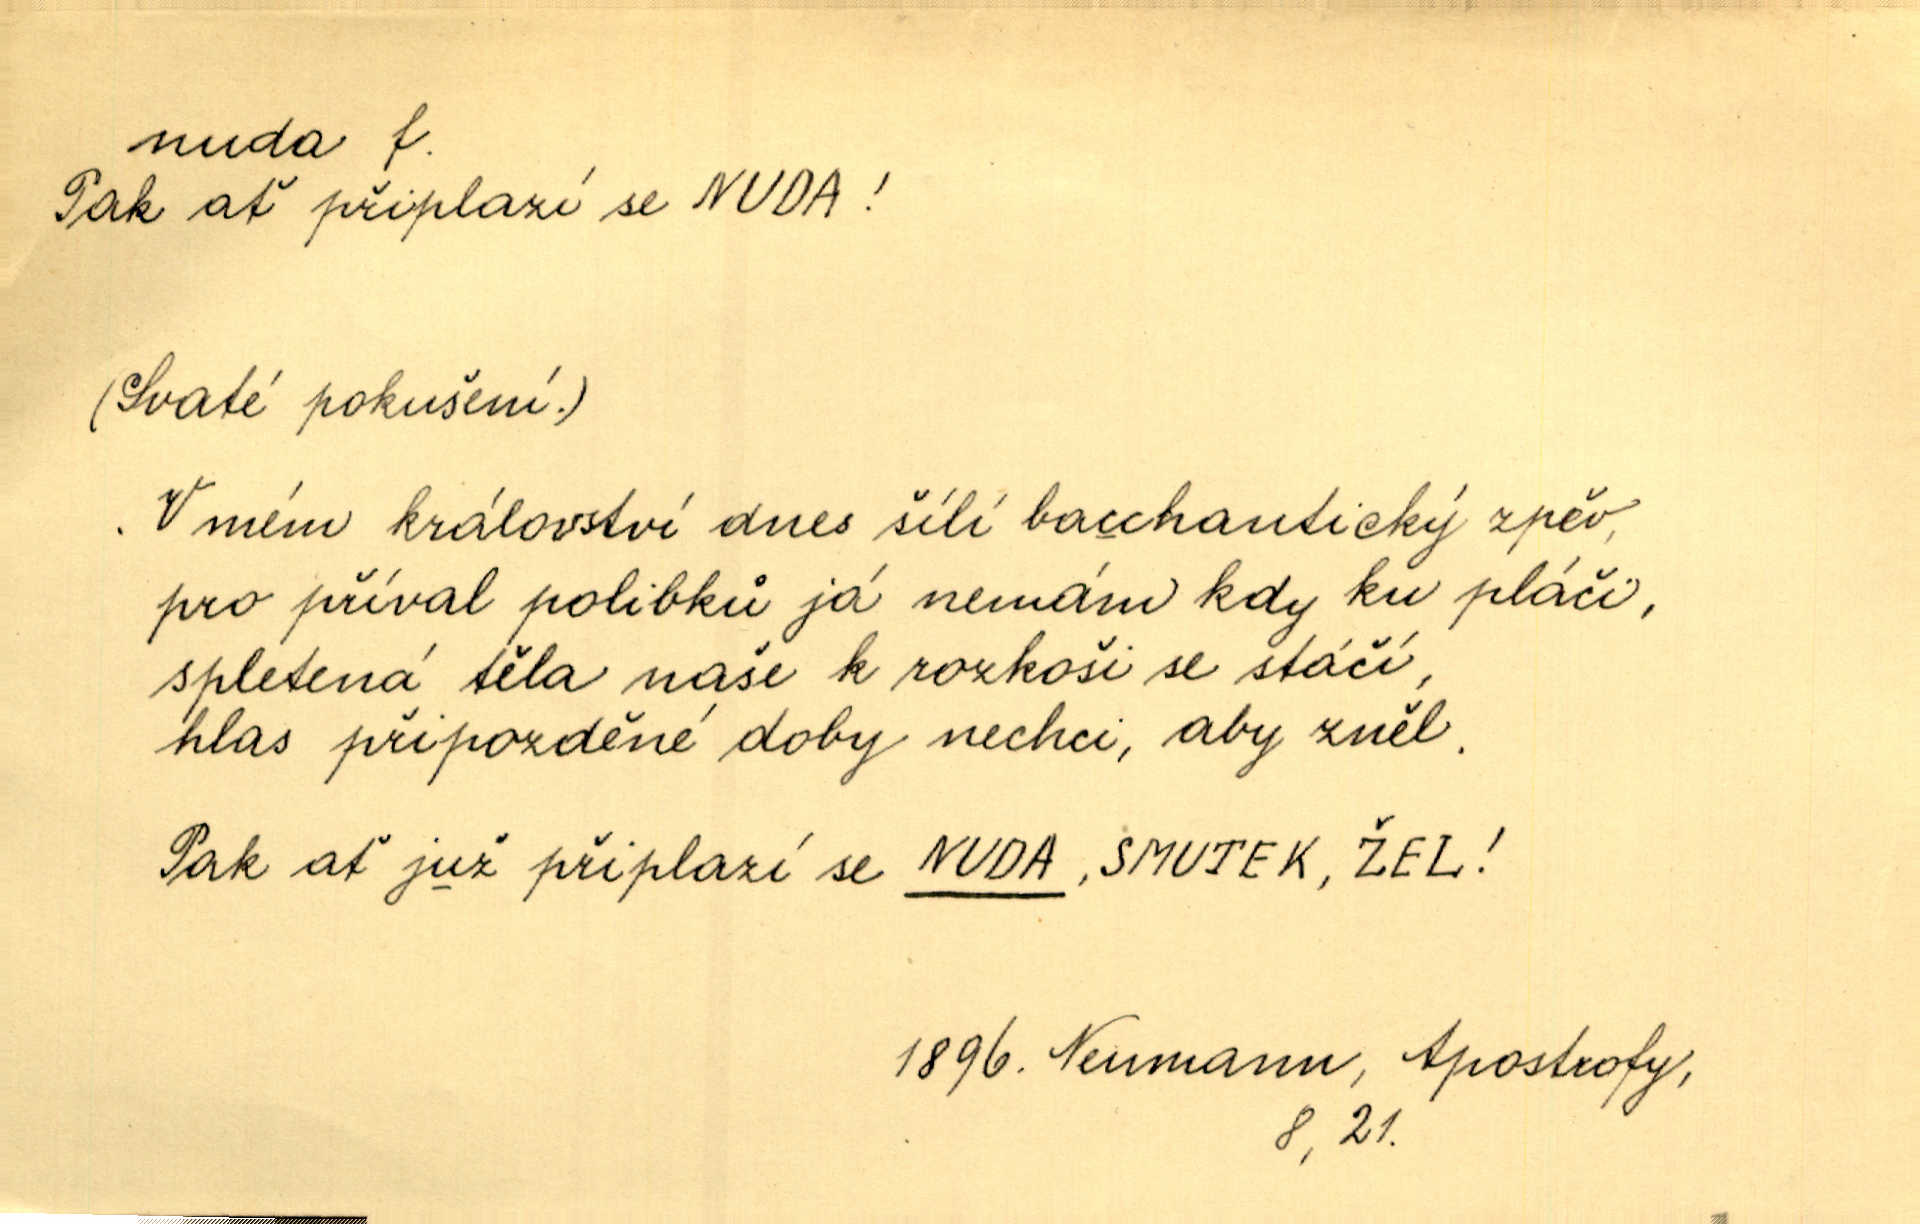 nuda f.
Pak ať připlazí se NUDA!
(Svaté pokušení.)
. V mém království dnes šílí bacchantický zpěv,
pro příval polibků já nemám kdy ku pláči,
spletená těla naše k rozkoši se stáčí,
hlas připozděné doby nechci, aby zněl.
Pak ať již připlazí se NUDA, SMUTEK, ŽEL!
1896. Neumann, Apostrofy,
8, 21.